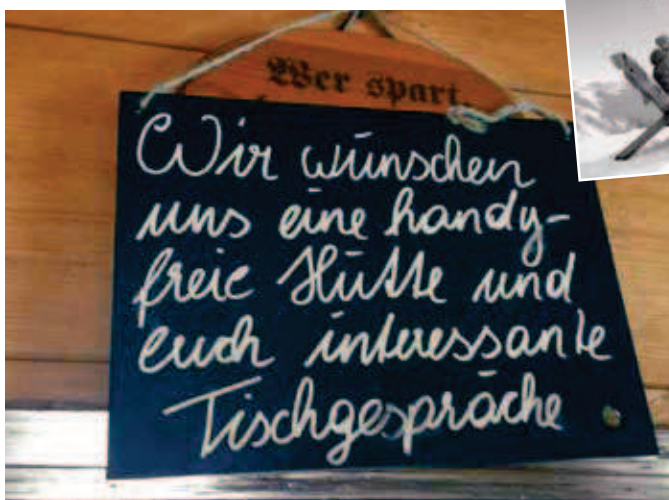 Wer spart,
Wir wünschen
uns eine handy-
freie Hütte und
euch interessante
Tischgespräche